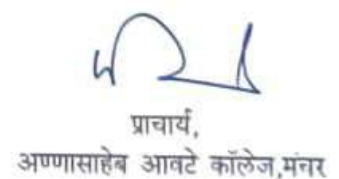 प्राचार्य,
अण्णासाहेब आवटे कॉलेज,मंचर